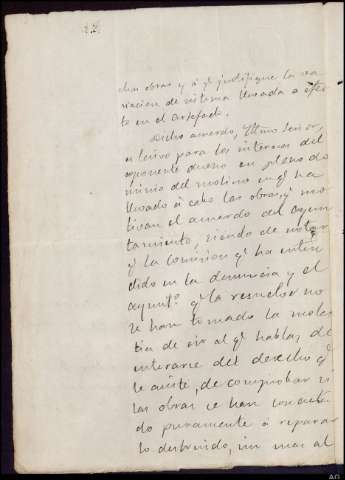 dhas obras y á q.e justifique la va-
riacion de sistema llevada a efec-
to en el artefacto.
Dicho acuerdo, Iltmo Señor,
es lesivo para los intereses del
exponente dueño en pleno do
minio del molino en q.e ha
llevado á cabo las obras, q.e mo
tivan el acuerdo del ayun
tamiento, siendo de notar
q.e la comision q.e ha enten
dido en la denuncia y el
ayunt.o q.e la resuelve no
se han tomado la moles
tia de oir al q.e habla, de
enterarse del derecho q.e
le asiste, de comprobar si
las obras se han concreta
do puramente á reparar
lo destruido, sin mas al